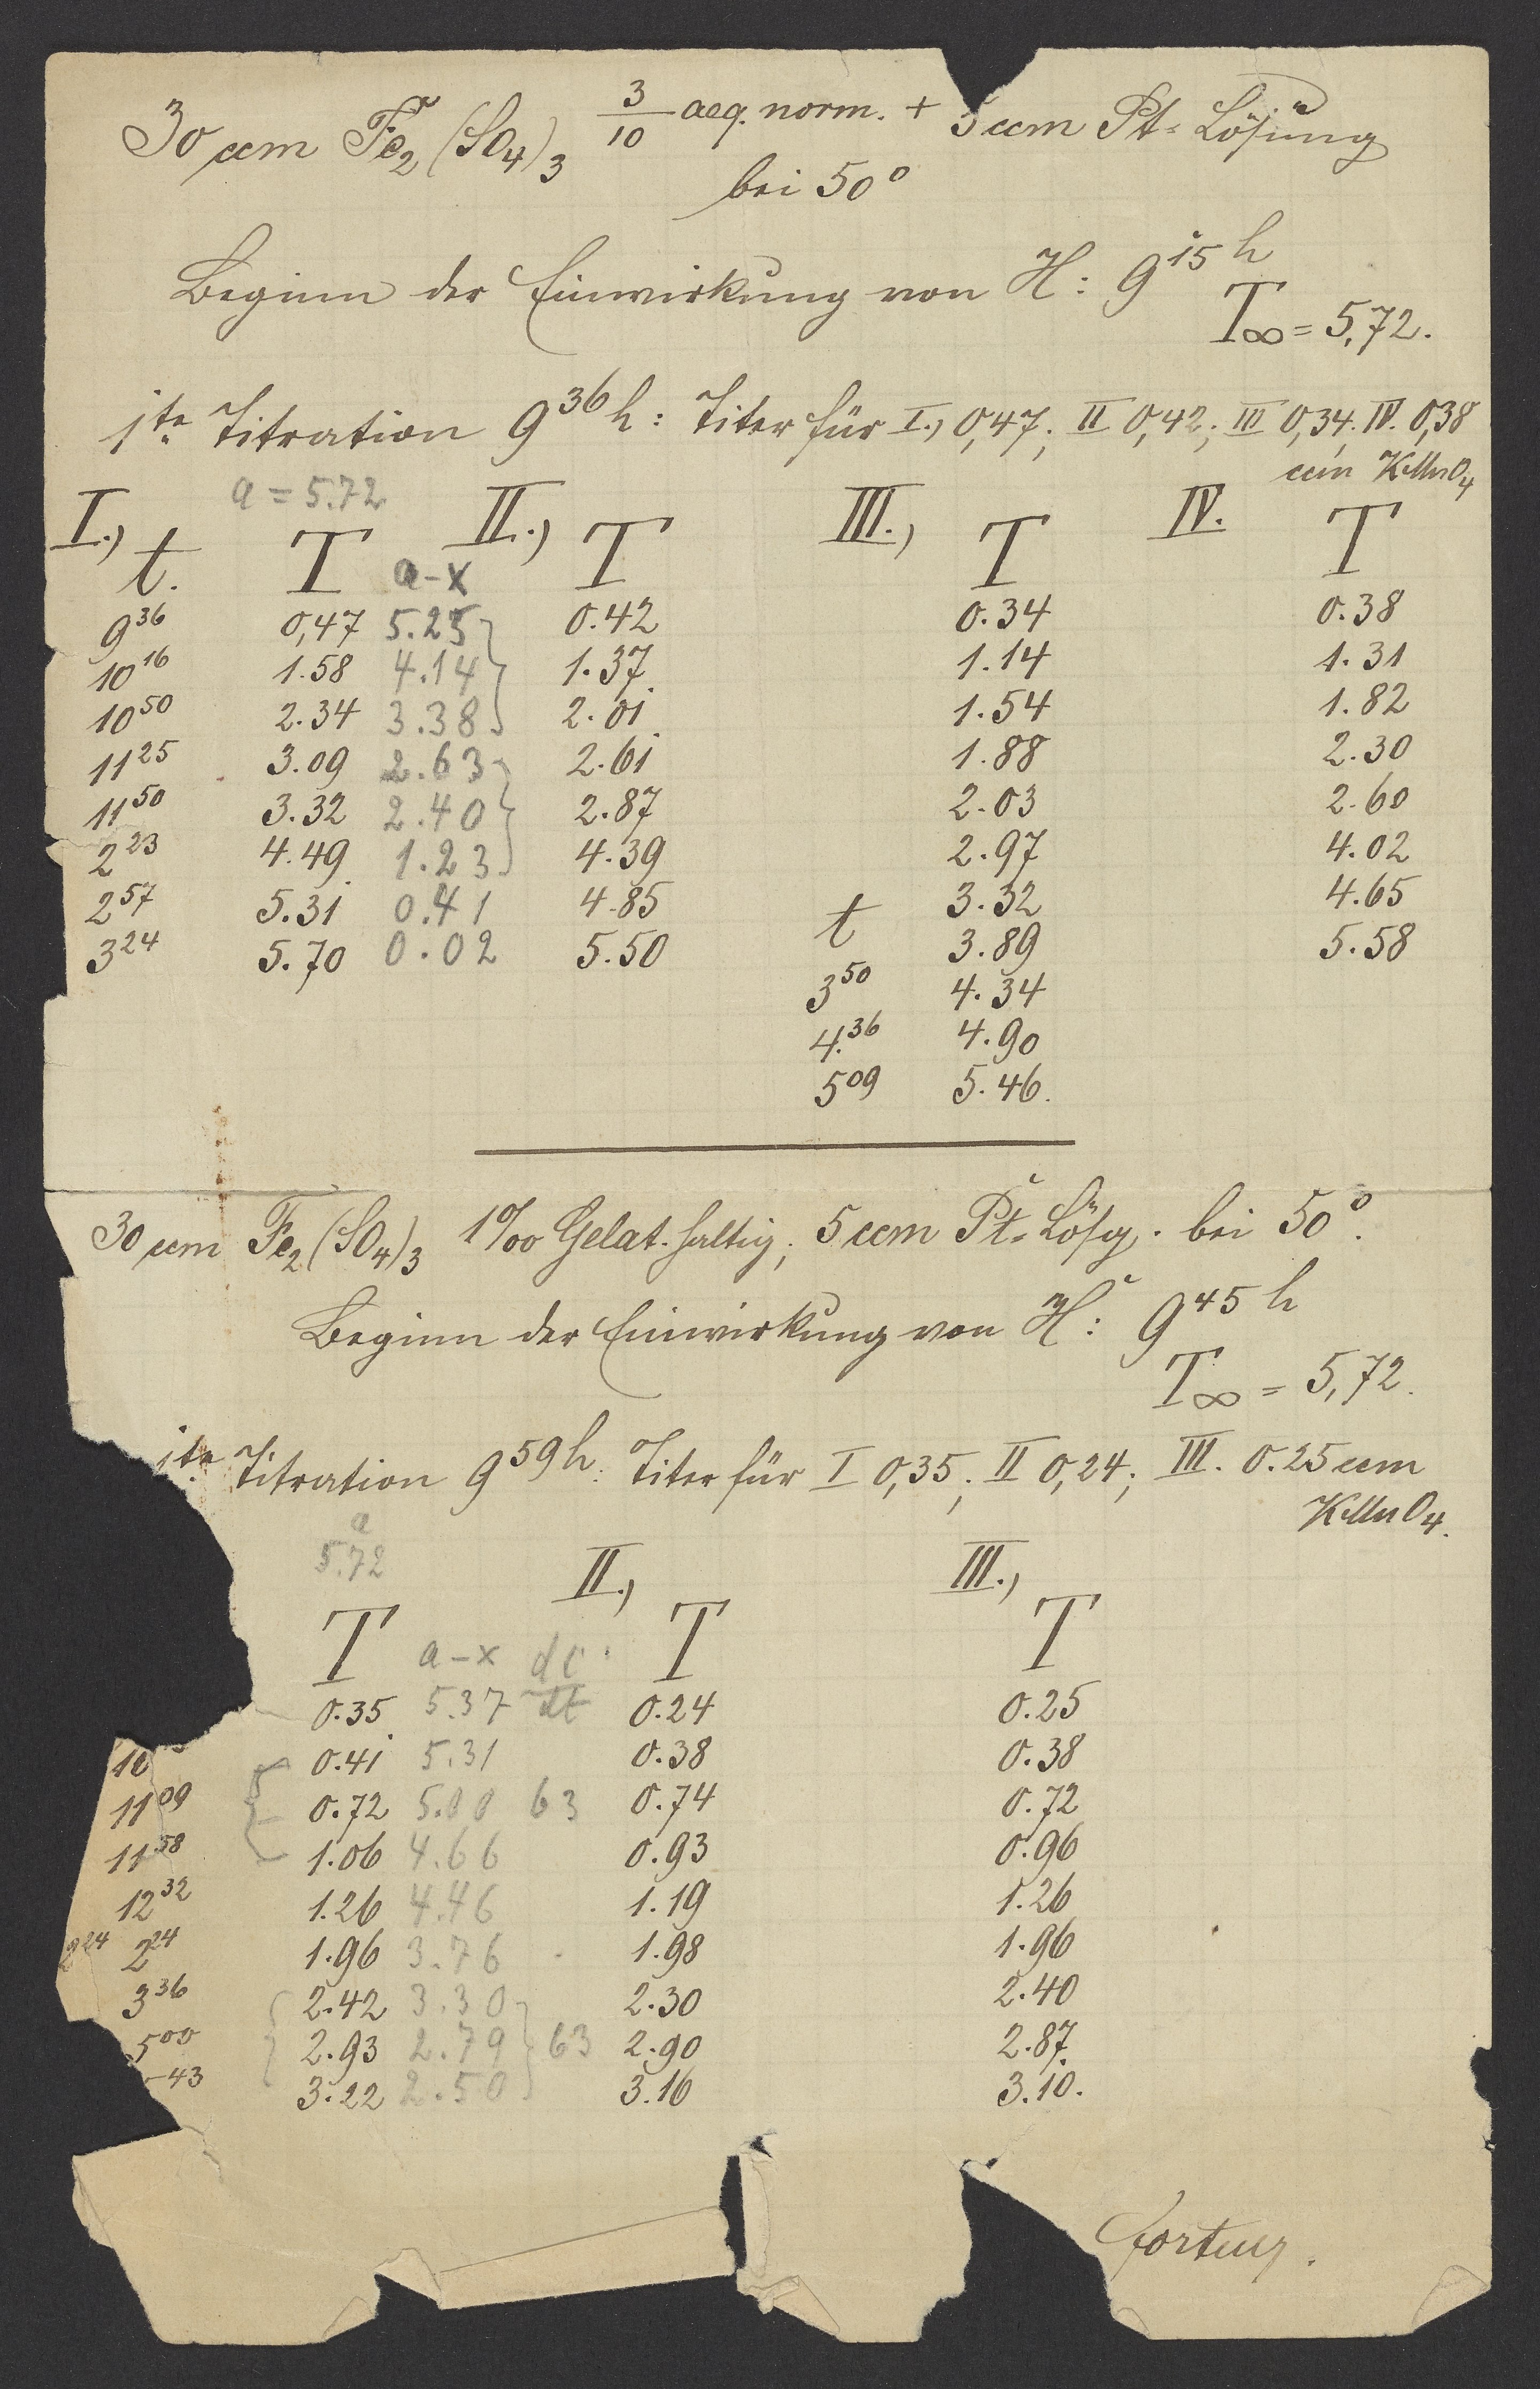 30 ccm Fe2(SO4)3 3/10 aeq. norm. + 5 ccm Pt-Lösung
bei 50°
Beginn der Einwirkung von H: 9^15 h
T∞ = 5,72.
1te Titration 9^36 h: Titer für I.) 0,47; II 0,42; III 0,34. IV. 0,38
ccm KMnO4
a = 5.72
I.) II.) III.) IV.
t. T a-x T T T
9^36 0,47 5.25 0.42 0.34 0.38
10^16 1.58 4.14 1.37 1.14 1.31
10^50 2.34 3.38 2.01 1.54 1.82
11^25 3.09 2.63 2.61 1.88 2.30
11^50 3.32 2.40 2.87 2.03 2.60
2^23 4.49 1.23 4.39 2.97 4.02
2^57 5.31 0.41 4.85 3.32 4.65
3^24 5.70 0.02 5.50 t 3.89 5.58
3^50 4.34
4.^36 4.90
5^09 5.46.
30 ccm Fe2(SO4)3 1‰ Gelat. haltig; 5 ccm Pt-Lösg. bei 50°.
Beginn der Einwirkung von H: 9^45 h
T∞ = 5,72.
1te Titration 9^59 h: Titer für I 0,35; II 0,24; III. 0.25 ccm
KMnO4.
a
5.72
II.) III.)
T a-x dc/dt T T
0.35 5.37 0.24 0.25
10 0.41 5.31 0.38 0.38
11^09 0.72 5.00 63 0.74 0.72
11^58 1.06 4.66 0.93 0.96
12^32 1.26 4.46 1.19 1.26
2^24 2^24 1.96 3.76 1.98 1.96
3^36 2.42 3.30 2.30 2.40
5^00 2.93 2.79 63 2.90 2.87.
43 3.22 2.50 3.16 3.10.